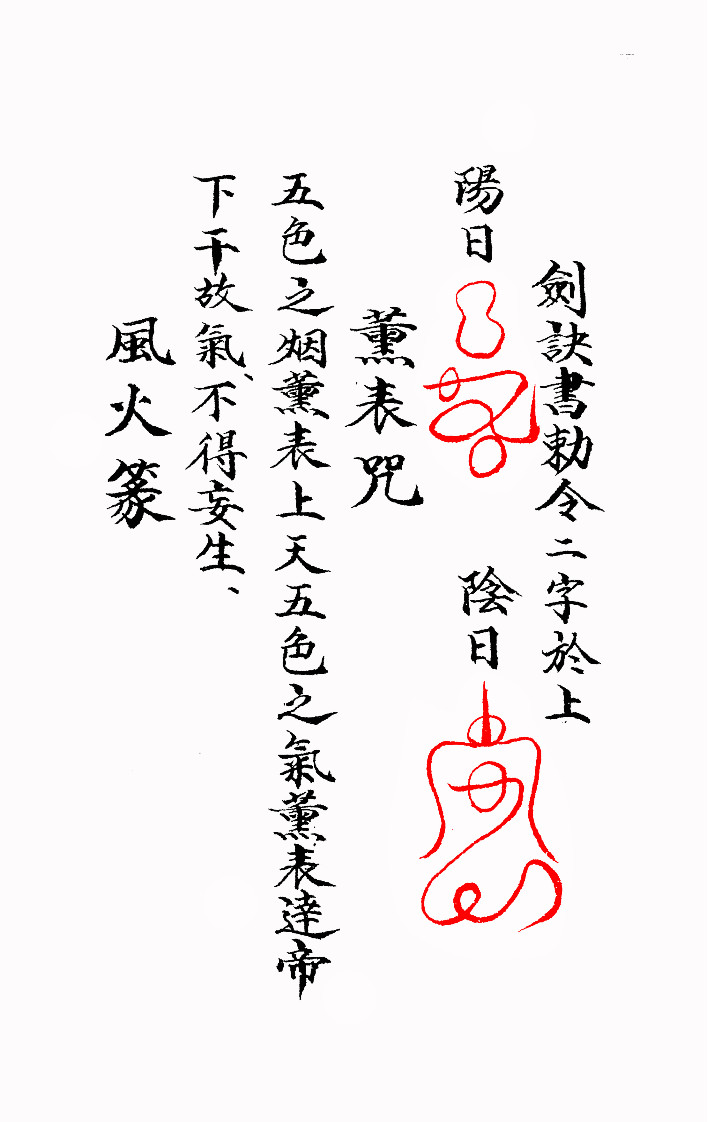 劍訣書勅令二字於上
陽日
陰日
薰表咒
五色之烟薰表上天五色之氣薰表達帝
下干故氣、不得妄生、
風火篆